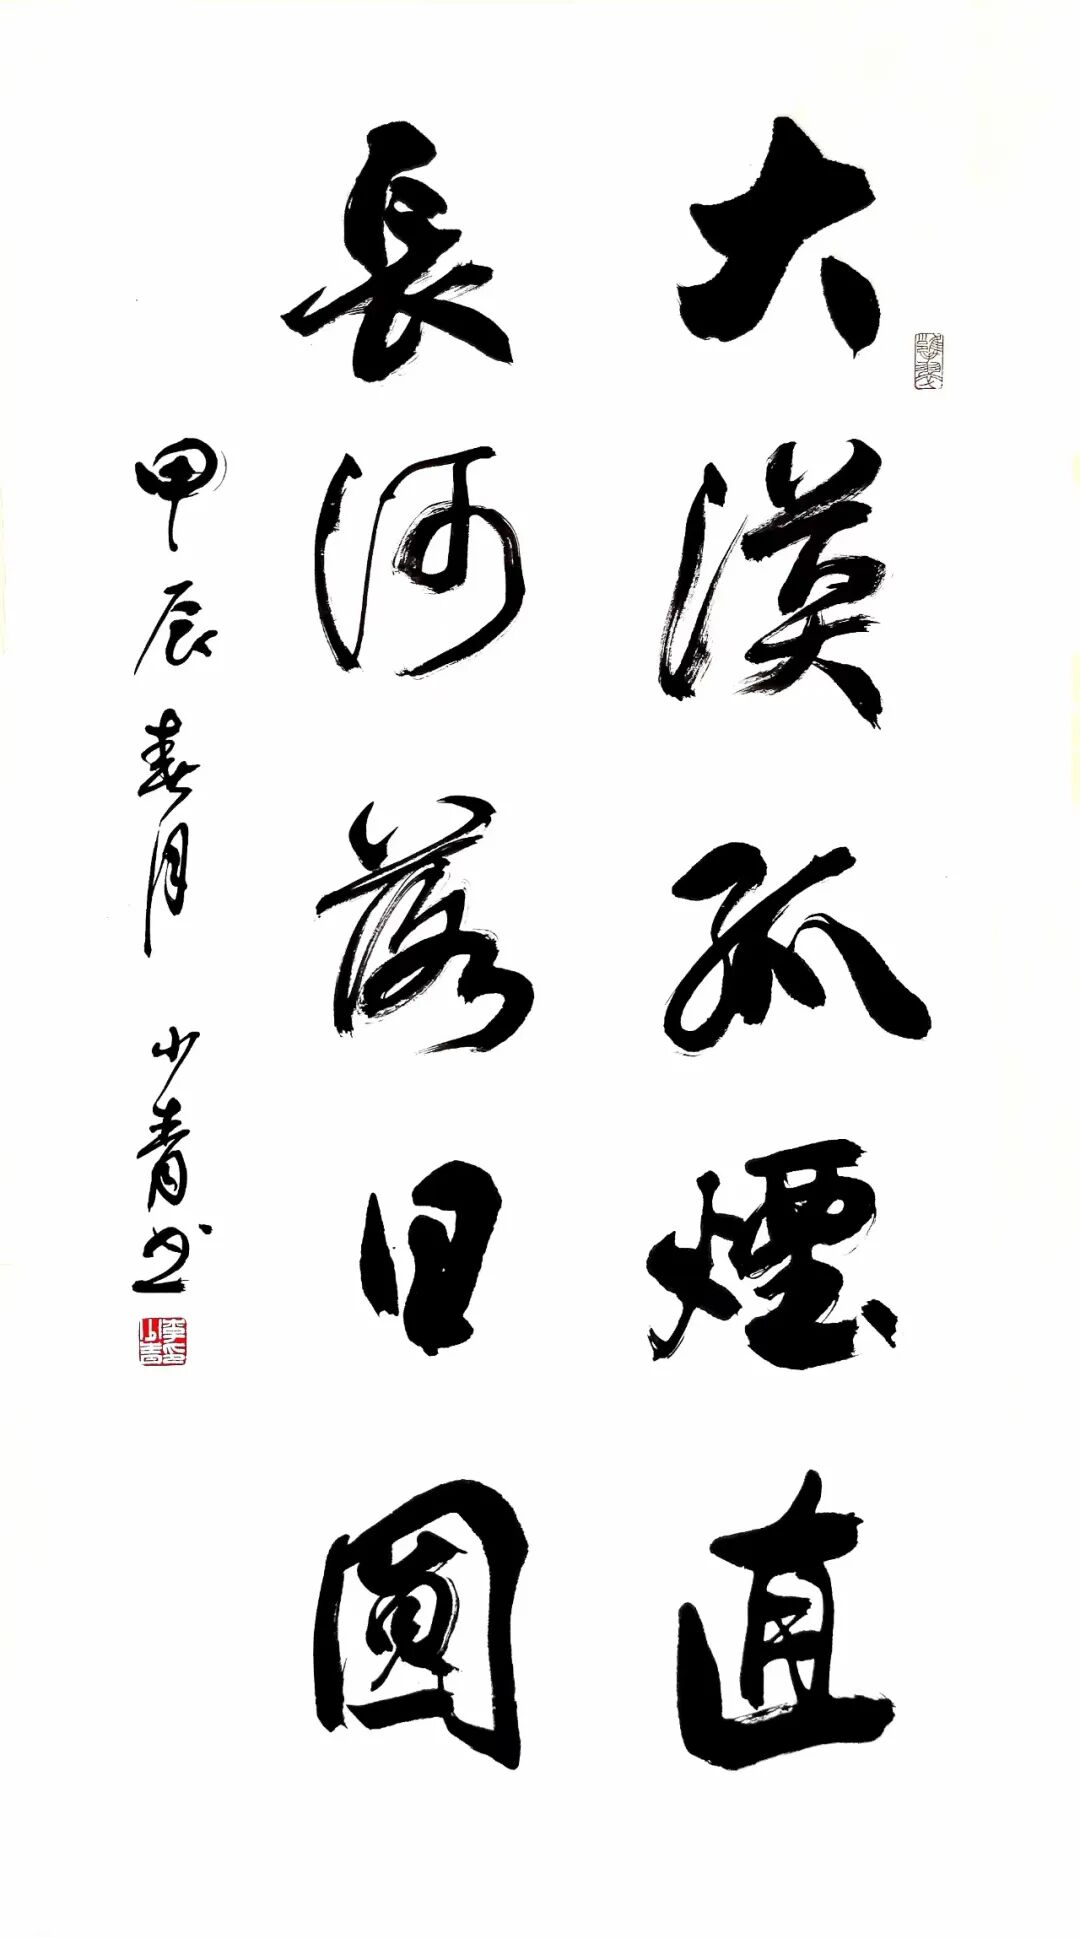 大漠孤煙直
長河落日圓
甲辰春月 少青书
李少青印